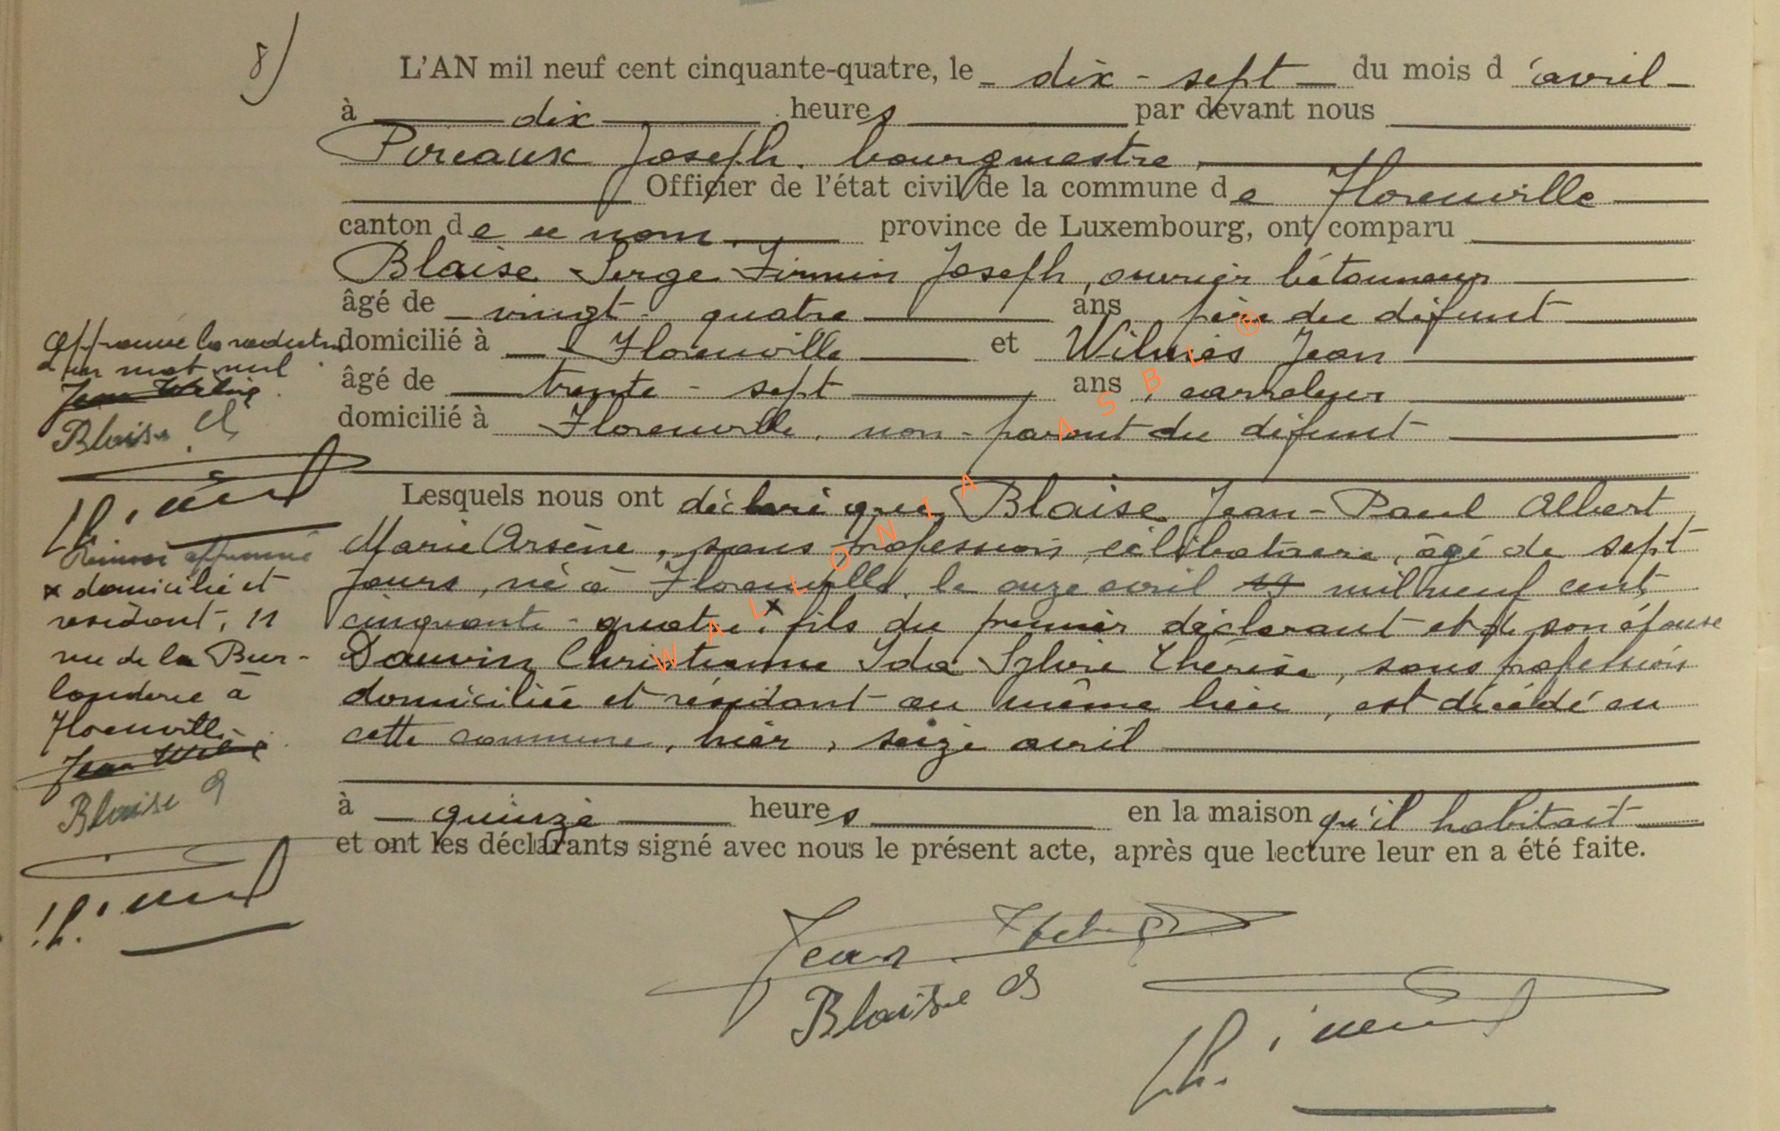 8)
L'AN mil neuf cent cinquante-quatre, le dix-sept du mois d'avril
à dix heures par devant nous
Pireaux Joseph, bourgmestre,
Officier de l'état civil de la commune de Florenville
canton de ce nom, province de Luxembourg, ont comparu
Blaise Serge Firmin Joseph, ouvrier bétonneur
âgé de vingt-quatre ans père du défunt
domicilié à Florenville et Wilmès Jean
âgé de trente-sept ans, carreleur
domicilié à Florenville, non-parent du défunt
Lesquels nous ont déclaré que Blaise Jean-Paul Albert
Marie Arsène, sans profession, célibataire, âgé de sept
jours, né à Florenville, le onze avril mil neuf cent
cinquante-quatre, x fils du premier déclarant et de son épouse
Dauvin Christianne Ida Sylvie Thérèse, sans profession
domiciliée et résidant au même lieu, est décédé en
cette commune, hier, seize avril
à quinze heures en la maison qu'il habitait
et ont les déclarants signé avec nous le présent acte, après que lecture leur en a été faite.
Approuvé la rature
d'un mot nul
Blaise S
Renvoi approuvé
x domicilié et
résidant, 11
rue de la
à
Florenville.
Blaise S
Jean
Blaise S
WALLONIA ASBL ®